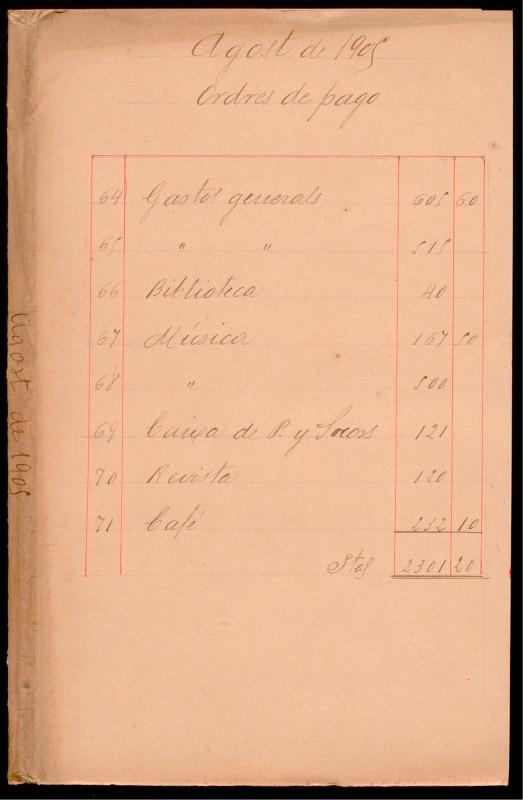 Agost de 1905
Ordres de pago
64 Gastos generals 605 60
65 " " 515
66 Biblioteca 40
67 Música 167 50
68 " 500
69 Caixa de P. y Socors 121
70 Revista 120
71 Café 232 10
Ptas 2301 20
Agost de 1905